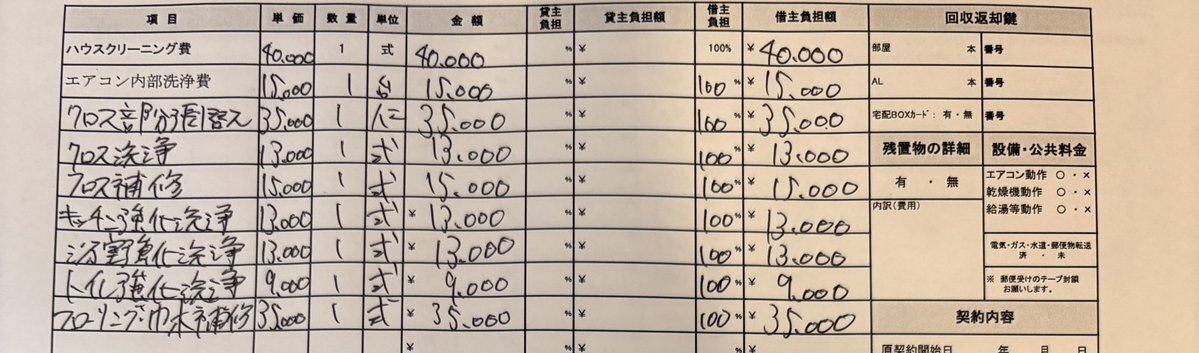 項目 単価 数量 単位 金額 貸主負担 貸主負担額 借主負担 借主負担額 回収返却鍵
ハウスクリーニング費 40.000 1 式 40.000 % ¥ 100% ¥ 40.000 部屋 本 番号
エアコン内部洗浄費 15.000 1 台 15.000 % ¥ 100% ¥ 15.000 AL 本 番号
クロス部分張替え 35.000 1 人工 35.000 % ¥ 100% ¥ 35.000 宅配BOXカード: 有・無 番号
クロス洗浄 13.000 1 式 13.000 % ¥ 100% ¥ 13.000 残置物の詳細 設備・公共料金
クロス補修 15.000 1 式 15.000 % ¥ 100% ¥ 15.000 有 ・ 無 エアコン動作 ○・×
乾燥機動作 ○・×
キッチン強化洗浄 13.000 1 式 ¥ 13.000 % ¥ 100% ¥ 13.000 内訳(費用) 給湯等動作 ○・×
強化洗浄 13.000 1 式 ¥ 13.000 % ¥ 100% ¥ 13.000 電気・ガス・水道・郵便物転送
済 ・ 未
トイレ強化洗浄 9.000 1 式 ¥ 9.000 % ¥ 100% ¥ 9.000 ※ 郵便受けのテープ封鎖
お願いします。
フローリング・巾木補修 35.000 1 式 ¥ 35.000 % ¥ 100% ¥ 35.000 契約内容
¥ % ¥ % ¥ 原契約開始日 年 月 日